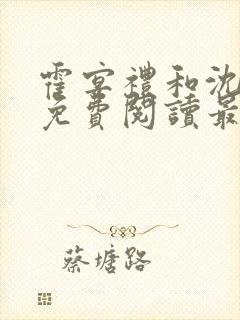 霍宴禮和沈
免費閱讀最
蔡塘路